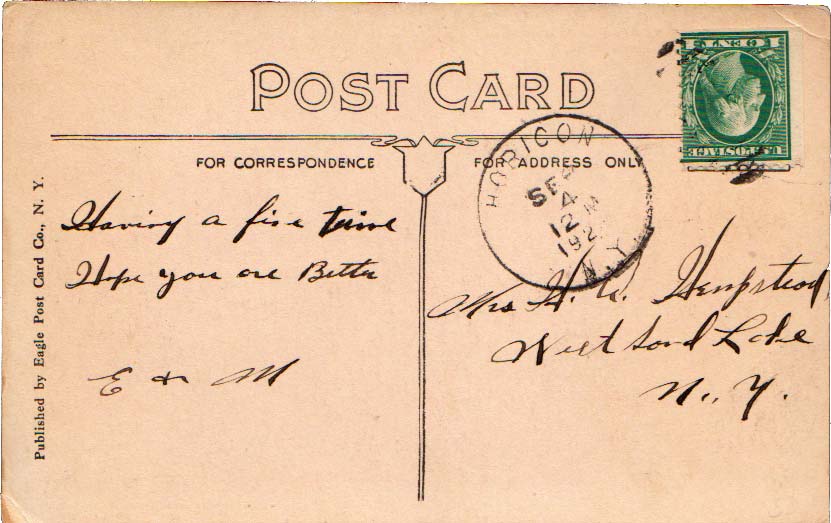 POST CARD
FOR CORRESPONDENCE
FOR ADDRESS ONLY
HORICON
SEP
4
12 M
192
N.Y.
U.S. POSTAGE
1 CENT 1
Published by Eagle Post Card Co., N. Y.
Having a fine time
Hope you are Better
E & M
Mrs H. W. Hempstead,
West Sand Lake
N.Y.